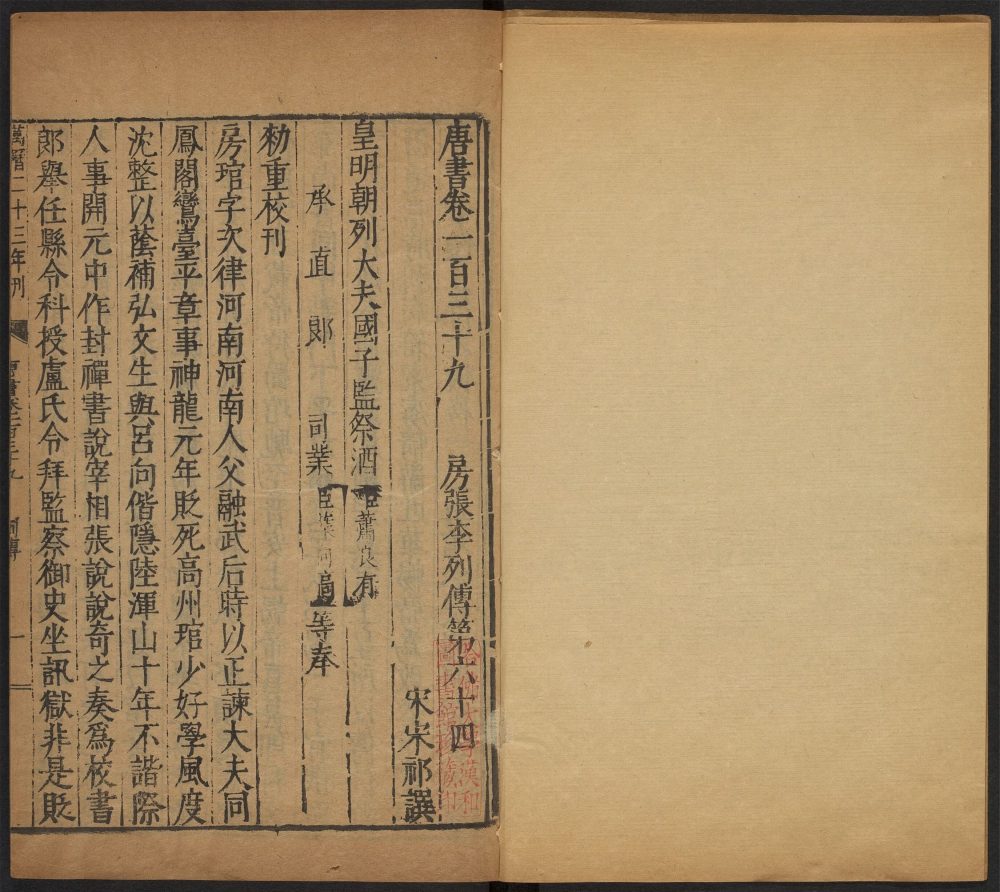 唐書卷一百三十九 房張李列傳第六十四
宋宋祁譔
皇明朝列大夫國子監祭酒臣蕭良有
承直郎 司業臣葉向高等奉
勑重校刊
房琯字次律河南河南人父融武后時以正諫大夫同
鳳閣鸞臺平章事神龍元年貶死高州琯少好學風度
沈整以蔭補弘文生與呂向偕隱陸渾山十年不諧際
人事開元中作封禪書說宰相張說說奇之奏為校書
郎舉任縣令科授盧氏令拜監察御史坐訊獄非是貶
萬曆二十三年刊 唐書卷一百三十九 列傳 一
哈佛大學漢和圖書館珍藏印